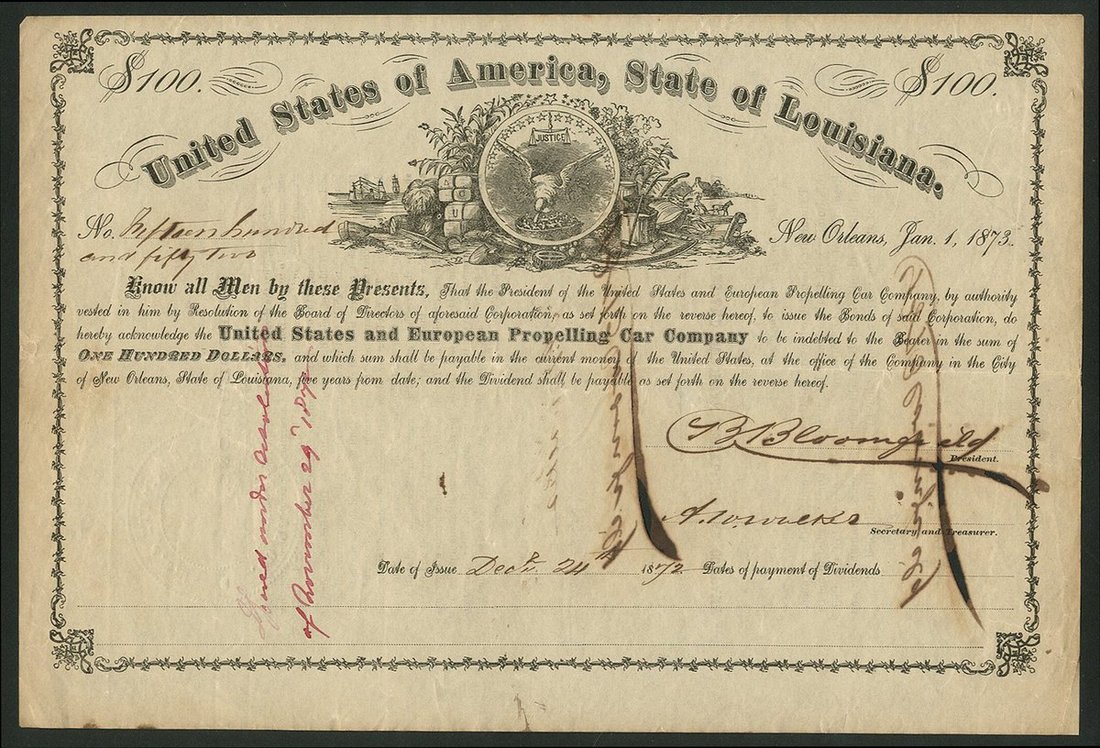 $100.
$100.
United States of America, State of Louisiana.
JUSTICE
No. Fifteen hundred
and fifty two
New Orleans, Jan. 1, 1873.
Know all Men by these Presents, That the President of the United States and European Propelling Car Company, by authority
vested in him by Resolution of the Board of Directors of aforesaid Corporation, as set forth on the reverse hereof, to issue the Bonds of said Corporation, do
hereby acknowledge the United States and European Propelling Car Company to be indebted to the Bearer in the sum of
ONE HUNDRED DOLLARS, and which sum shall be payable in the current money of the United States, at the office of the Company in the City
of New Orleans, State of Louisiana, five years from date; and the Dividend shall be payable as set forth on the reverse hereof.
B Bloomfield
President.
Secretary and Treasurer.
Date of Issue Decr. 24th 1872 Dates of payment of Dividends
Issued under resolution
of November 29" 1872